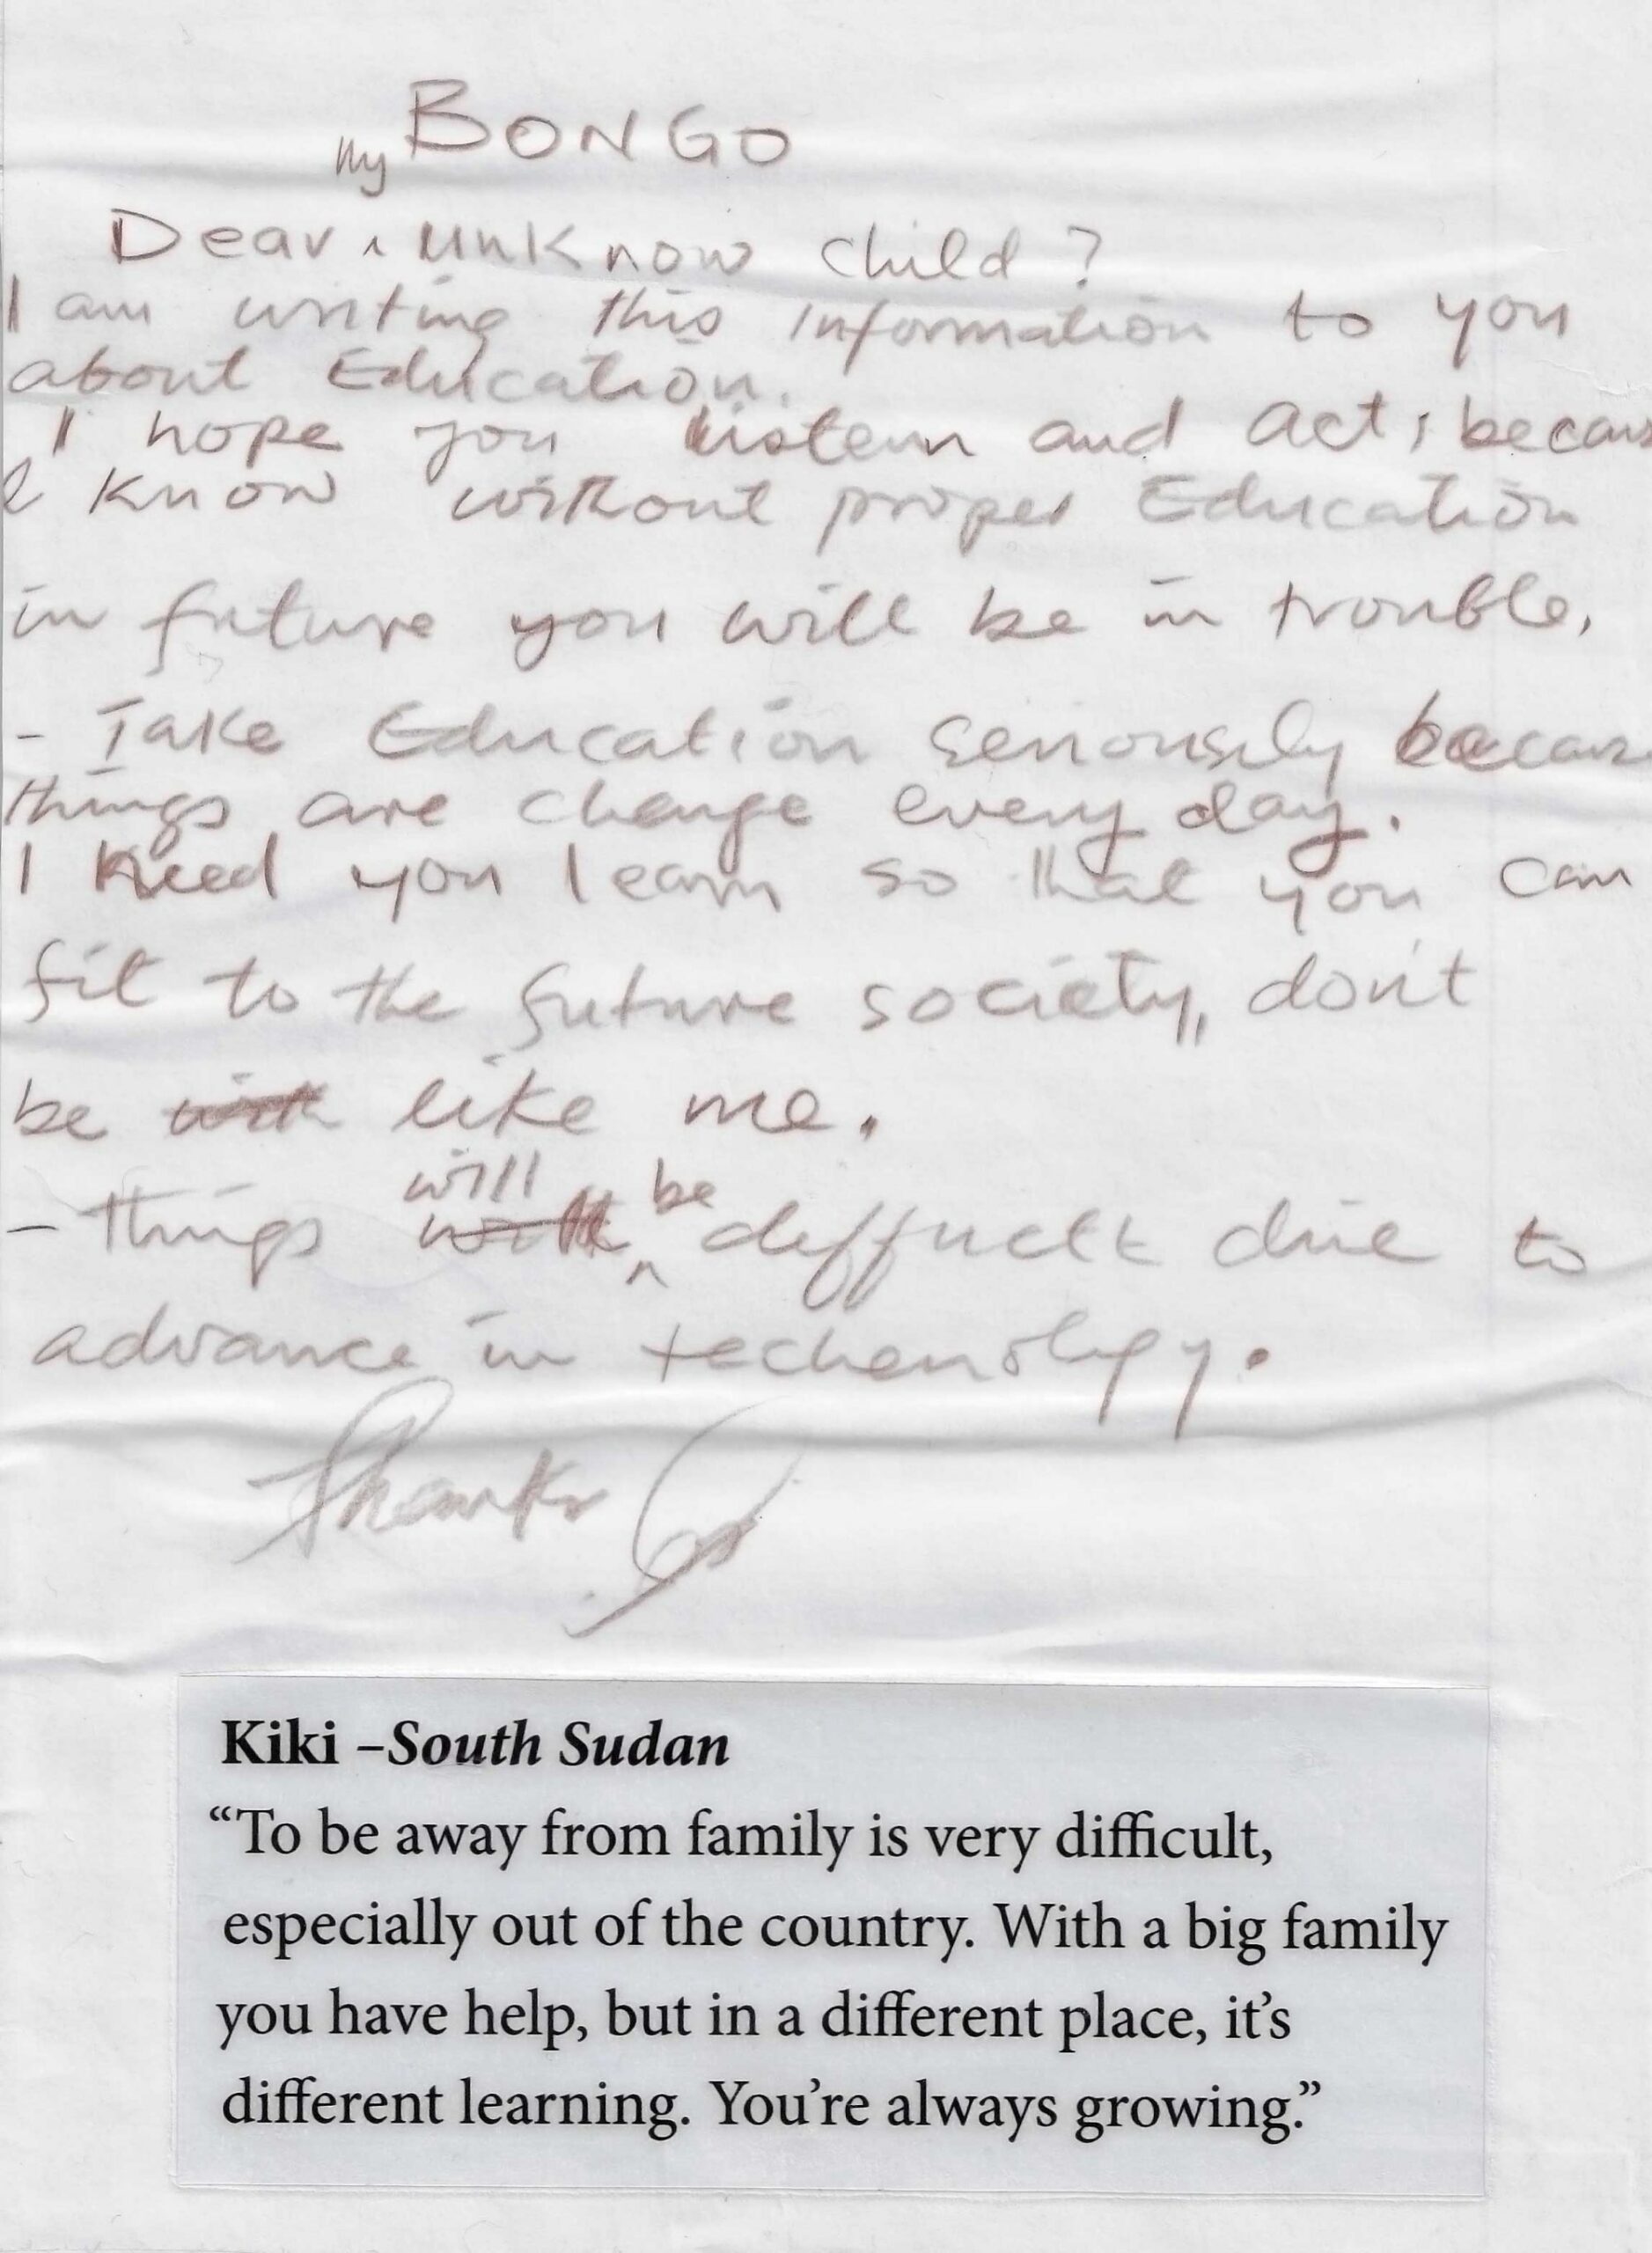 BONGO
My
Dear, unknow child?
I am writing this information to you
about Education.
I hope you listenn and act, becaus
I know without proper Education
in future you will be in trouble,
- Take Education seriousely becaus
things are change every day.
I need you learn so that you can
fit to the future society, don't
be like me.
- things will be deffuclt due to
advance in techenology.
Thanks
Kiki –South Sudan
“To be away from family is very difficult,
especially out of the country. With a big family
you have help, but in a different place, it’s
different learning. You’re always growing.”